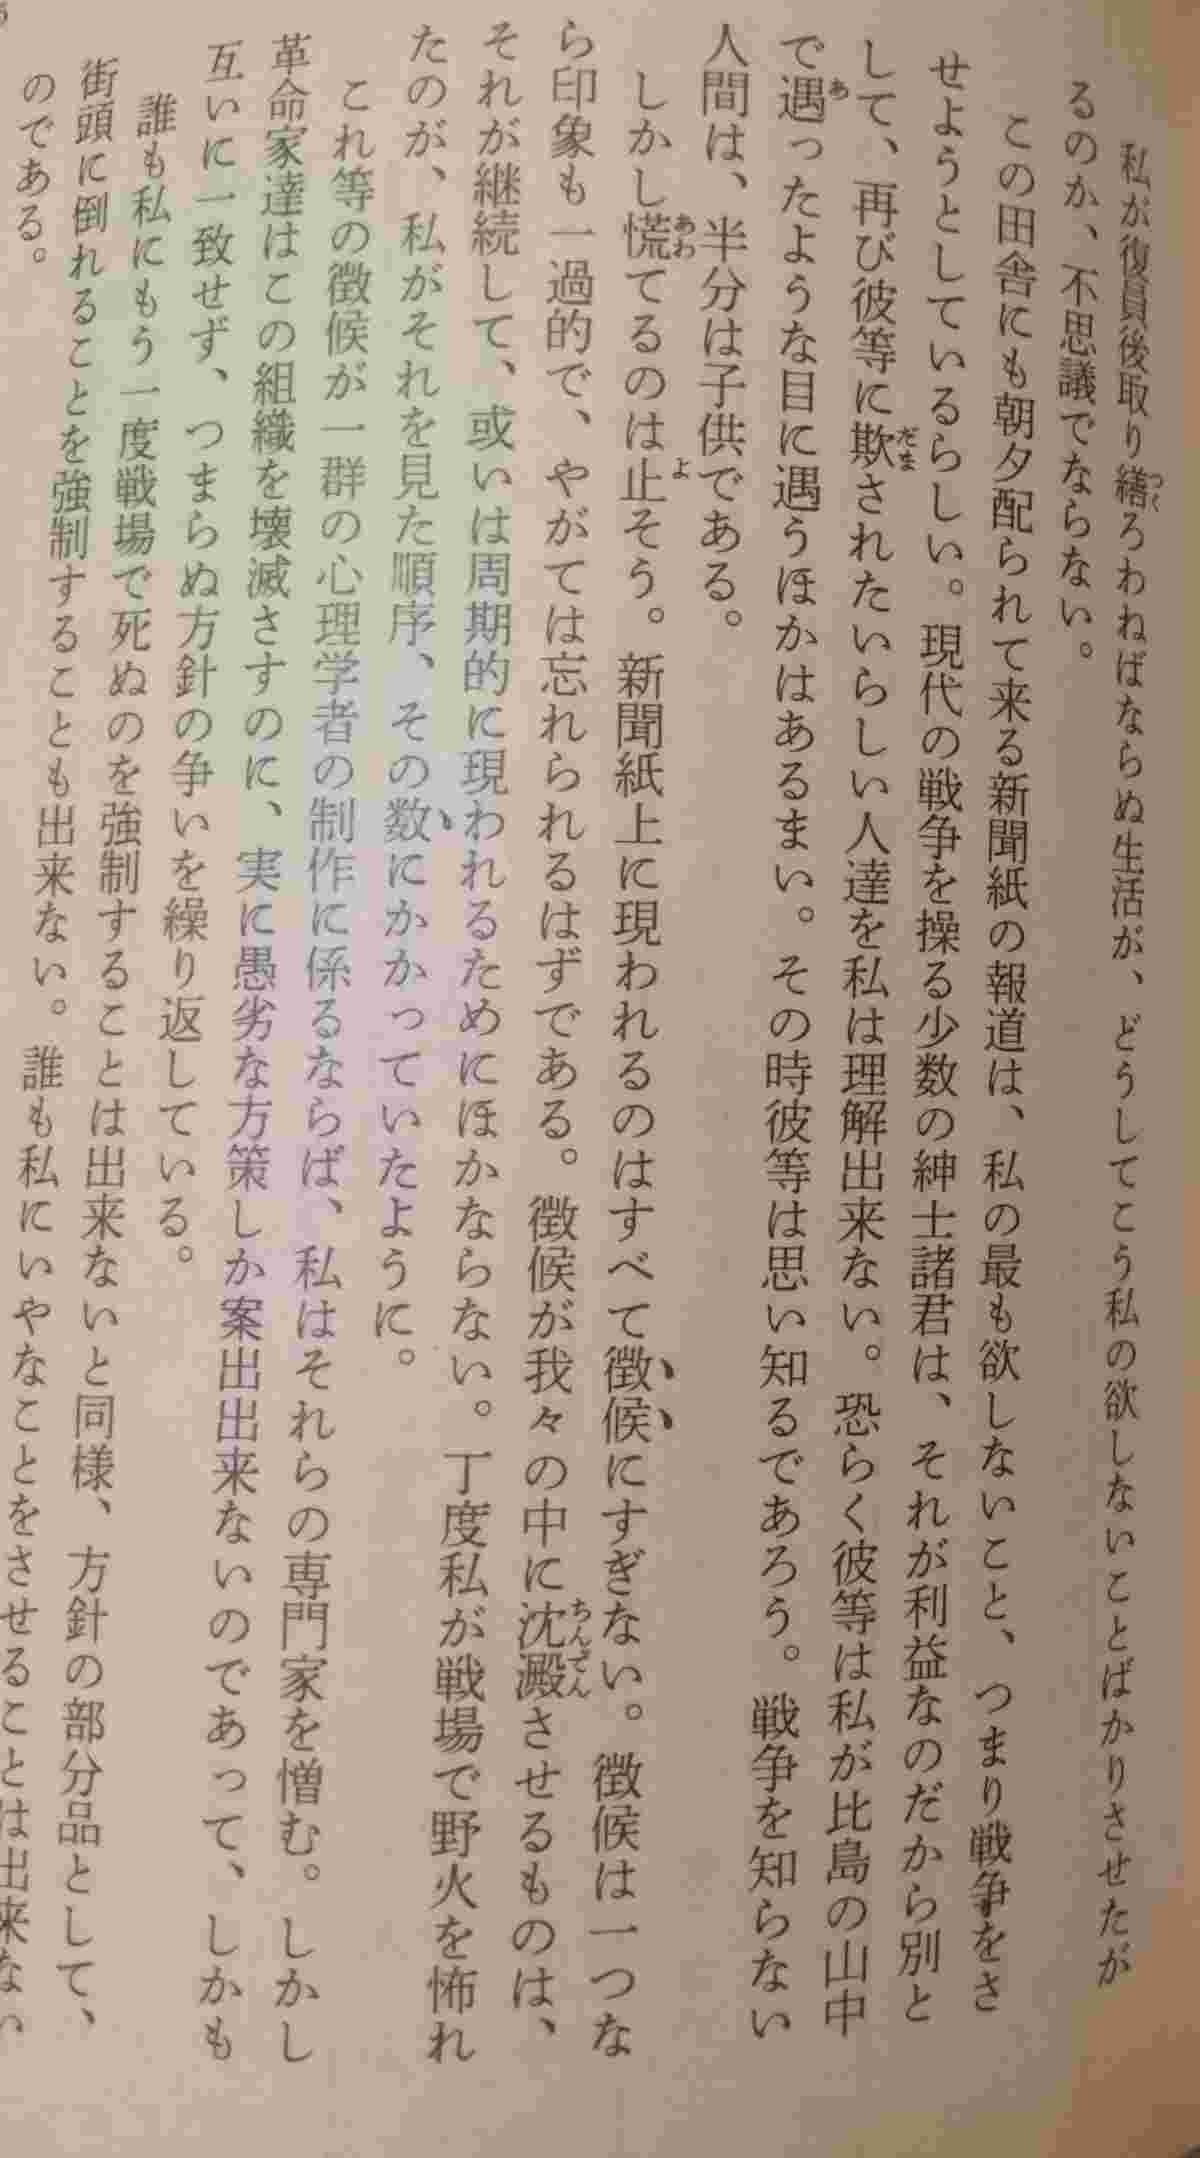 私が復員後取り繕ろわねばならぬ生活が、どうしてこう私の欲しないことばかりさせたが
るのか、不思議でならない。
この田舎にも朝夕配られて来る新聞紙の報道は、私の最も欲しないこと、つまり戦争をさ
せようとしているらしい。現代の戦争を操る少数の紳士諸君は、それが利益なのだから別と
して、再び彼等に欺されたいらしい人達を私は理解出来ない。恐らく彼等は私が比島の山中
で遇ったような目に遇うほかはあるまい。その時彼等は思い知るであろう。戦争を知らない
人間は、半分は子供である。
しかし慌てるのは止そう。新聞紙上に現われるのはすべて徴候にすぎない。徴候は一つな
ら印象も一過的で、やがては忘れられるはずである。徴候が我々の中に沈澱させるものは、
それが継続して、或いは周期的に現われるためにほかならない。丁度私が戦場で野火を怖れ
たのが、私がそれを見た順序、その数にかかっていたように。
これ等の徴候が一群の心理学者の制作に係るならば、私はそれらの専門家を憎む。しかし
革命家達はこの組織を壊滅さすのに、実に愚劣な方策しか案出出来ないのであって、しかも
互いに一致せず、つまらぬ方針の争いを繰り返している。
誰も私にもう一度戦場で死ぬのを強制することは出来ないと同様、方針の部分品として、
街頭に倒れることを強制することも出来ない。誰も私にいやなことをさせることは出来ない
のである。